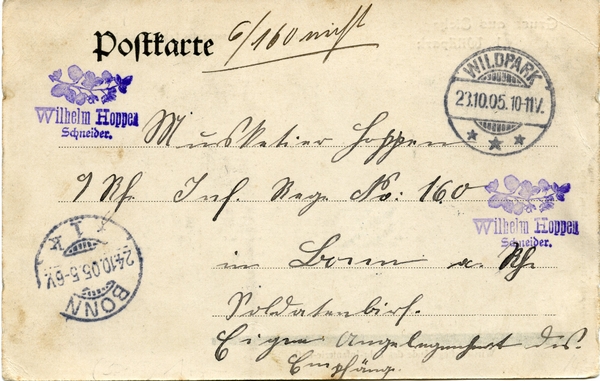 Postkarte
6/160 nicht
Wilhelm Hoppen
Schneider.
WILDPARK
23.10.05.10-11V.
Musketier Hoppen
9 Rh. Inf. Rege No: 160
Wilhelm Hoppen
Schneider.
in Bonn a. Rh.
BONN
24.10.05.5-6V.
Soldatenbrf.
Eigene Angelegenheit des
Empfäng.